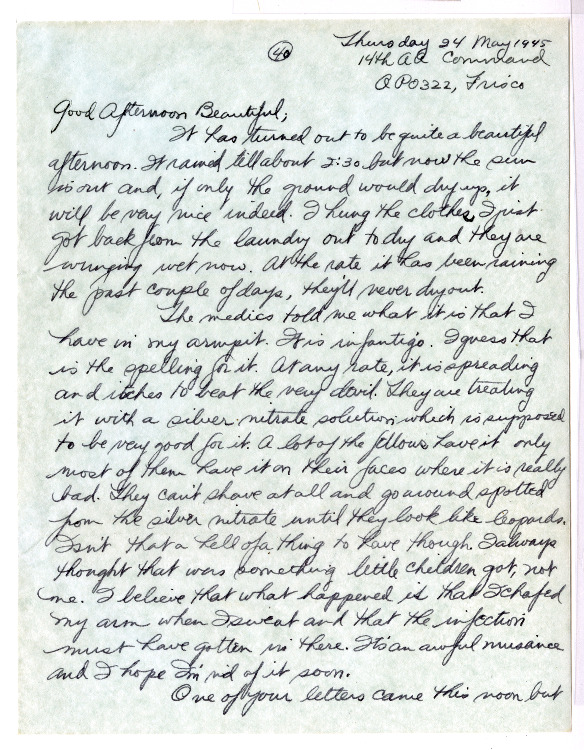 40
Thursday 24 May 1945
14th AA Command
APO 322, Frisco
Good Afternoon Beautiful;
It has turned out to be quite a beautiful
afternoon. It rained till about 2:30 but now the sun
is out and, if only the ground would dry up, it
will be very nice indeed. I hung the clothes I just
got back from the laundry out to dry and they are
wringing wet now. At the rate it has been raining
the past couple of days, they'll never dry out.
The medics told me what it is that I
have in my armpit. It is infantigo. I guess that
is the spelling for it. At any rate, it is spreading
and itches to beat the very devil. They are treating
it with a silver nitrate solution which is supposed
to be very good for it. A lot of the fellows have it only
most of them have it on their faces where it is really
bad. They can't shave at all and go around spotted
from the silver nitrate until they look like leopards.
Isn't that a hell of a thing to have though. I always
thought that was something little children got, not
me. I believe that what happened is that I chafed
my arm when I sweat and that the infection
must have gotten in there. It's an awful nuisance
and I hope I'm rid of it soon.
One of your letters came this noon but